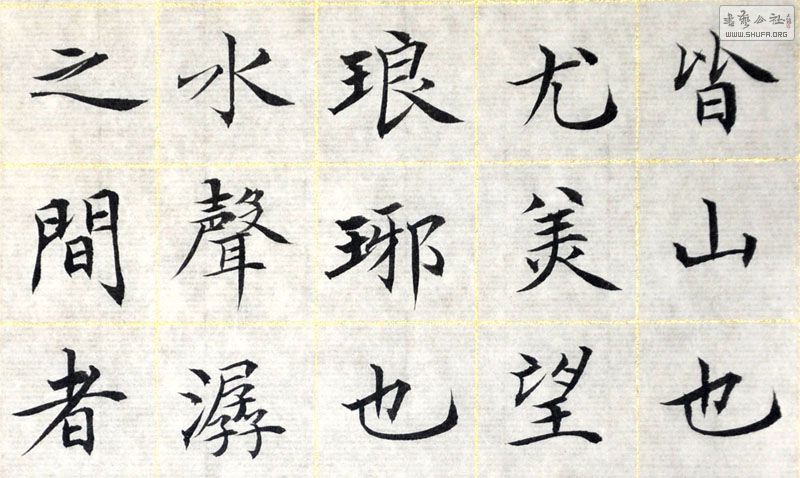 皆山也
尤美望
琅琊也
水聲潺
之間者
書藝公社
WWW.SHUFA.ORG